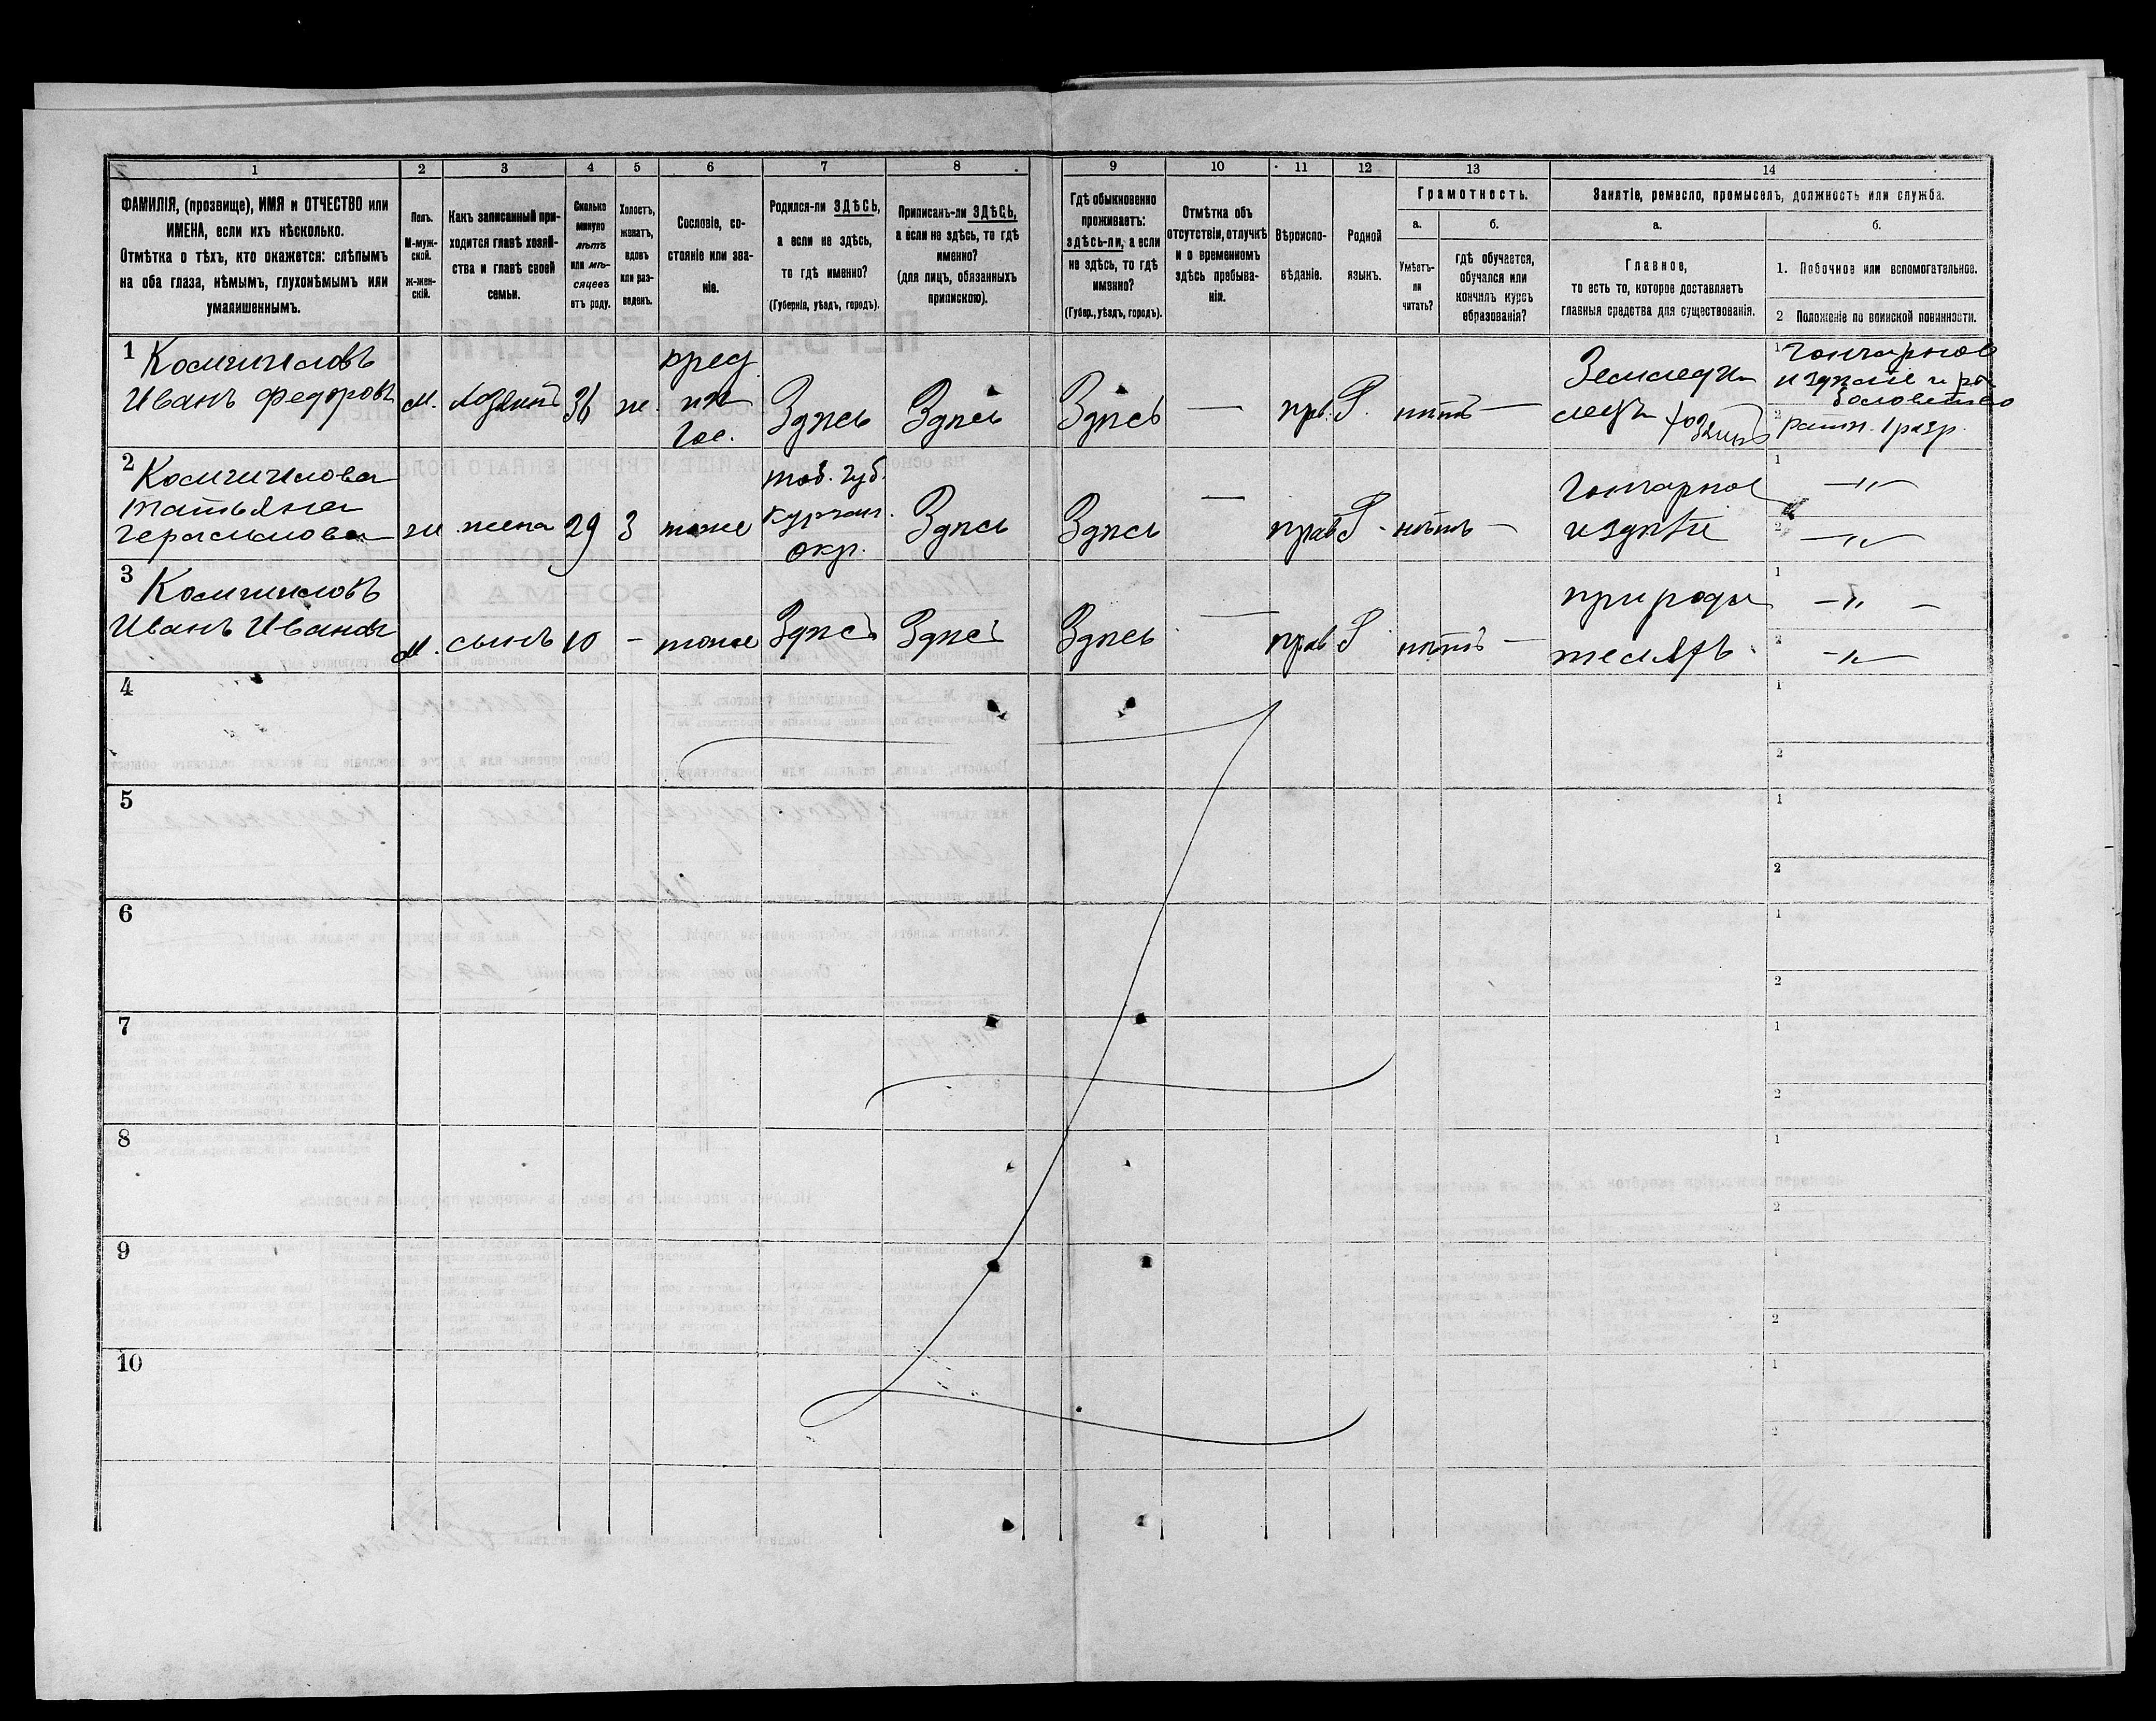 1 2 3 4 5 6 7 8 9 10 11 12 13 14
ФАМИЛІЯ, (прозвище), ИМЯ и ОТЧЕСТВО или
ИМЕНА, если ихъ нѣсколько.
Отмѣтка о тѣхъ, кто окажется: слѣпымъ
на оба глаза, нѣмымъ, глухонѣмымъ или
умалишеннымъ.
Полъ.
М-муж-
ской.
Ж-жен-
скій.
Какъ записанный при-
ходится главѣ хозяй-
ства и главѣ своей
семьи.
Сколько
минуло
лѣтъ
или мѣ-
сяцевъ
отъ роду.
Холостъ,
женатъ,
вдовъ
или раз-
веденъ.
Сословіе, со-
стояніе или зва-
ніе.
Родился-ли ЗДѢСЬ,
а если не здѣсь,
то гдѣ именно?
(Губернія, уѣздъ, городъ).
Приписанъ-ли ЗДѢСЬ,
а если не здѣсь, то гдѣ
именно?
(для лицъ, обязанныхъ
припискою).
Гдѣ обыкновенно
проживаетъ:
здѣсь-ли, а если
не здѣсь, то гдѣ
именно?
(Губер., уѣздъ, городъ).
Отмѣтка объ
отсутствіи, отлучкѣ
и о временномъ
здѣсь пребыва-
ніи.
Вѣроиспо-
вѣданіе.
Родной
языкъ.
Грамотность.
а.
Умѣетъ-
ли
читать?
б.
гдѣ обучается,
обучался или
кончилъ курсъ
образованія?
Занятіе, ремесло, промыселъ, должность или служба.
а.
Главное,
то есть то, которое доставляетъ
главныя средства для существованія.
б.
1. Побочное или вспомогательное.
2 Положеніе по воинской повинности.
1
Иванъ Федоровъ
м. хозяинъ 36 ж.
крес
гос.
Здѣсь Здѣсь Здѣсь — прв. Р. нѣтъ —
Земледѣ
лецъ хозяинъ
1 Гончарное
издѣліе и ры
боловство
2 ратн. 1 разр.
2
Татьяна
Герасимова
ж жена 29 З тоже
тоб. губ.
Курган.
окр.
Здѣсь Здѣсь — прав Р - нѣтъ —
Гончарное
издѣліе
1 —"—
2 —"—
3
Иванъ Ивановъ
м. сынъ 10 - тоже Здѣсь Здѣсь Здѣсь — прав Р. нѣтъ —
при роди
теляхъ
1 —"—
2 —"—
4 1
2
5 1
2
6 1
2
7 1
2
8 1
2
9 1
2
10 1
2